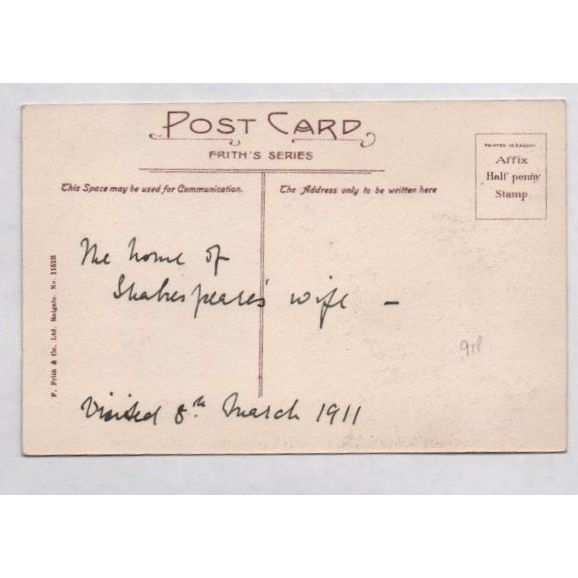 POST CARD
FRITH'S SERIES
This Space may be used for Communication.
The Address only to be written here
Affix
Half penny
Stamp.
The home of
Shakespeare's wife —
Visited 8th March 1911
F. Frith & Co. Ltd. Reigate. No. 11518